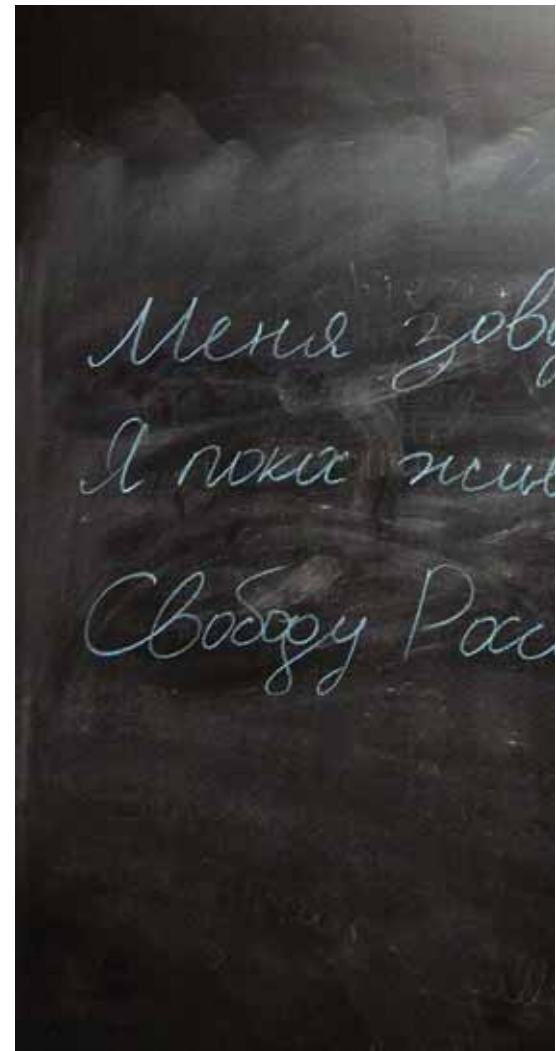 Меня зову
Я пока жив
Свободу Росс